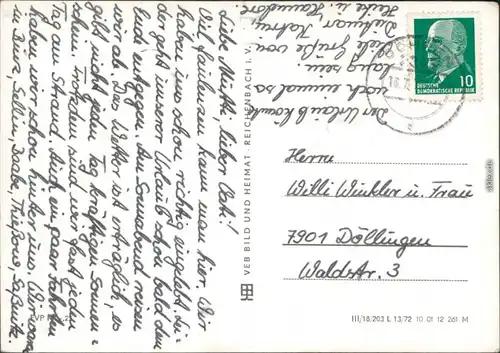 Liebe Mutti, lieber Vati!
Viel faulsam kann man hier. Wir
haben uns schon richtig eingelebt. Lei-
der geht unser Urlaub schon bald dem
Ende entgegen. Am Sonnabend reisen
wir ab. Das Wetter ist erträglich, es
gibt nicht jeden Tag kräftigen Sonnen-
schein. Trotzdem sind wir fast jeden
Tag am Strand. Auch ein paar Fahrten
haben wir schon hinter uns. Wir waren
in Binz, Sellin, Baabe, Thießow, Saßnitz.
Der Urlaub könnte
noch einmal so
lang sein.
Viele Grüße von
Dietmar, Katrin,
Heike u. Hannelore
VEB BILD UND HEIMAT · REICHENBACH I. V.
DEUTSCHE
DEMOKRATISCHE REPUBLIK
10
Herrn
Willi Winkler u. Frau
7901 Döllingen
Waldstr. 3
III/18/203 L 13/72 10 01 12 261 M